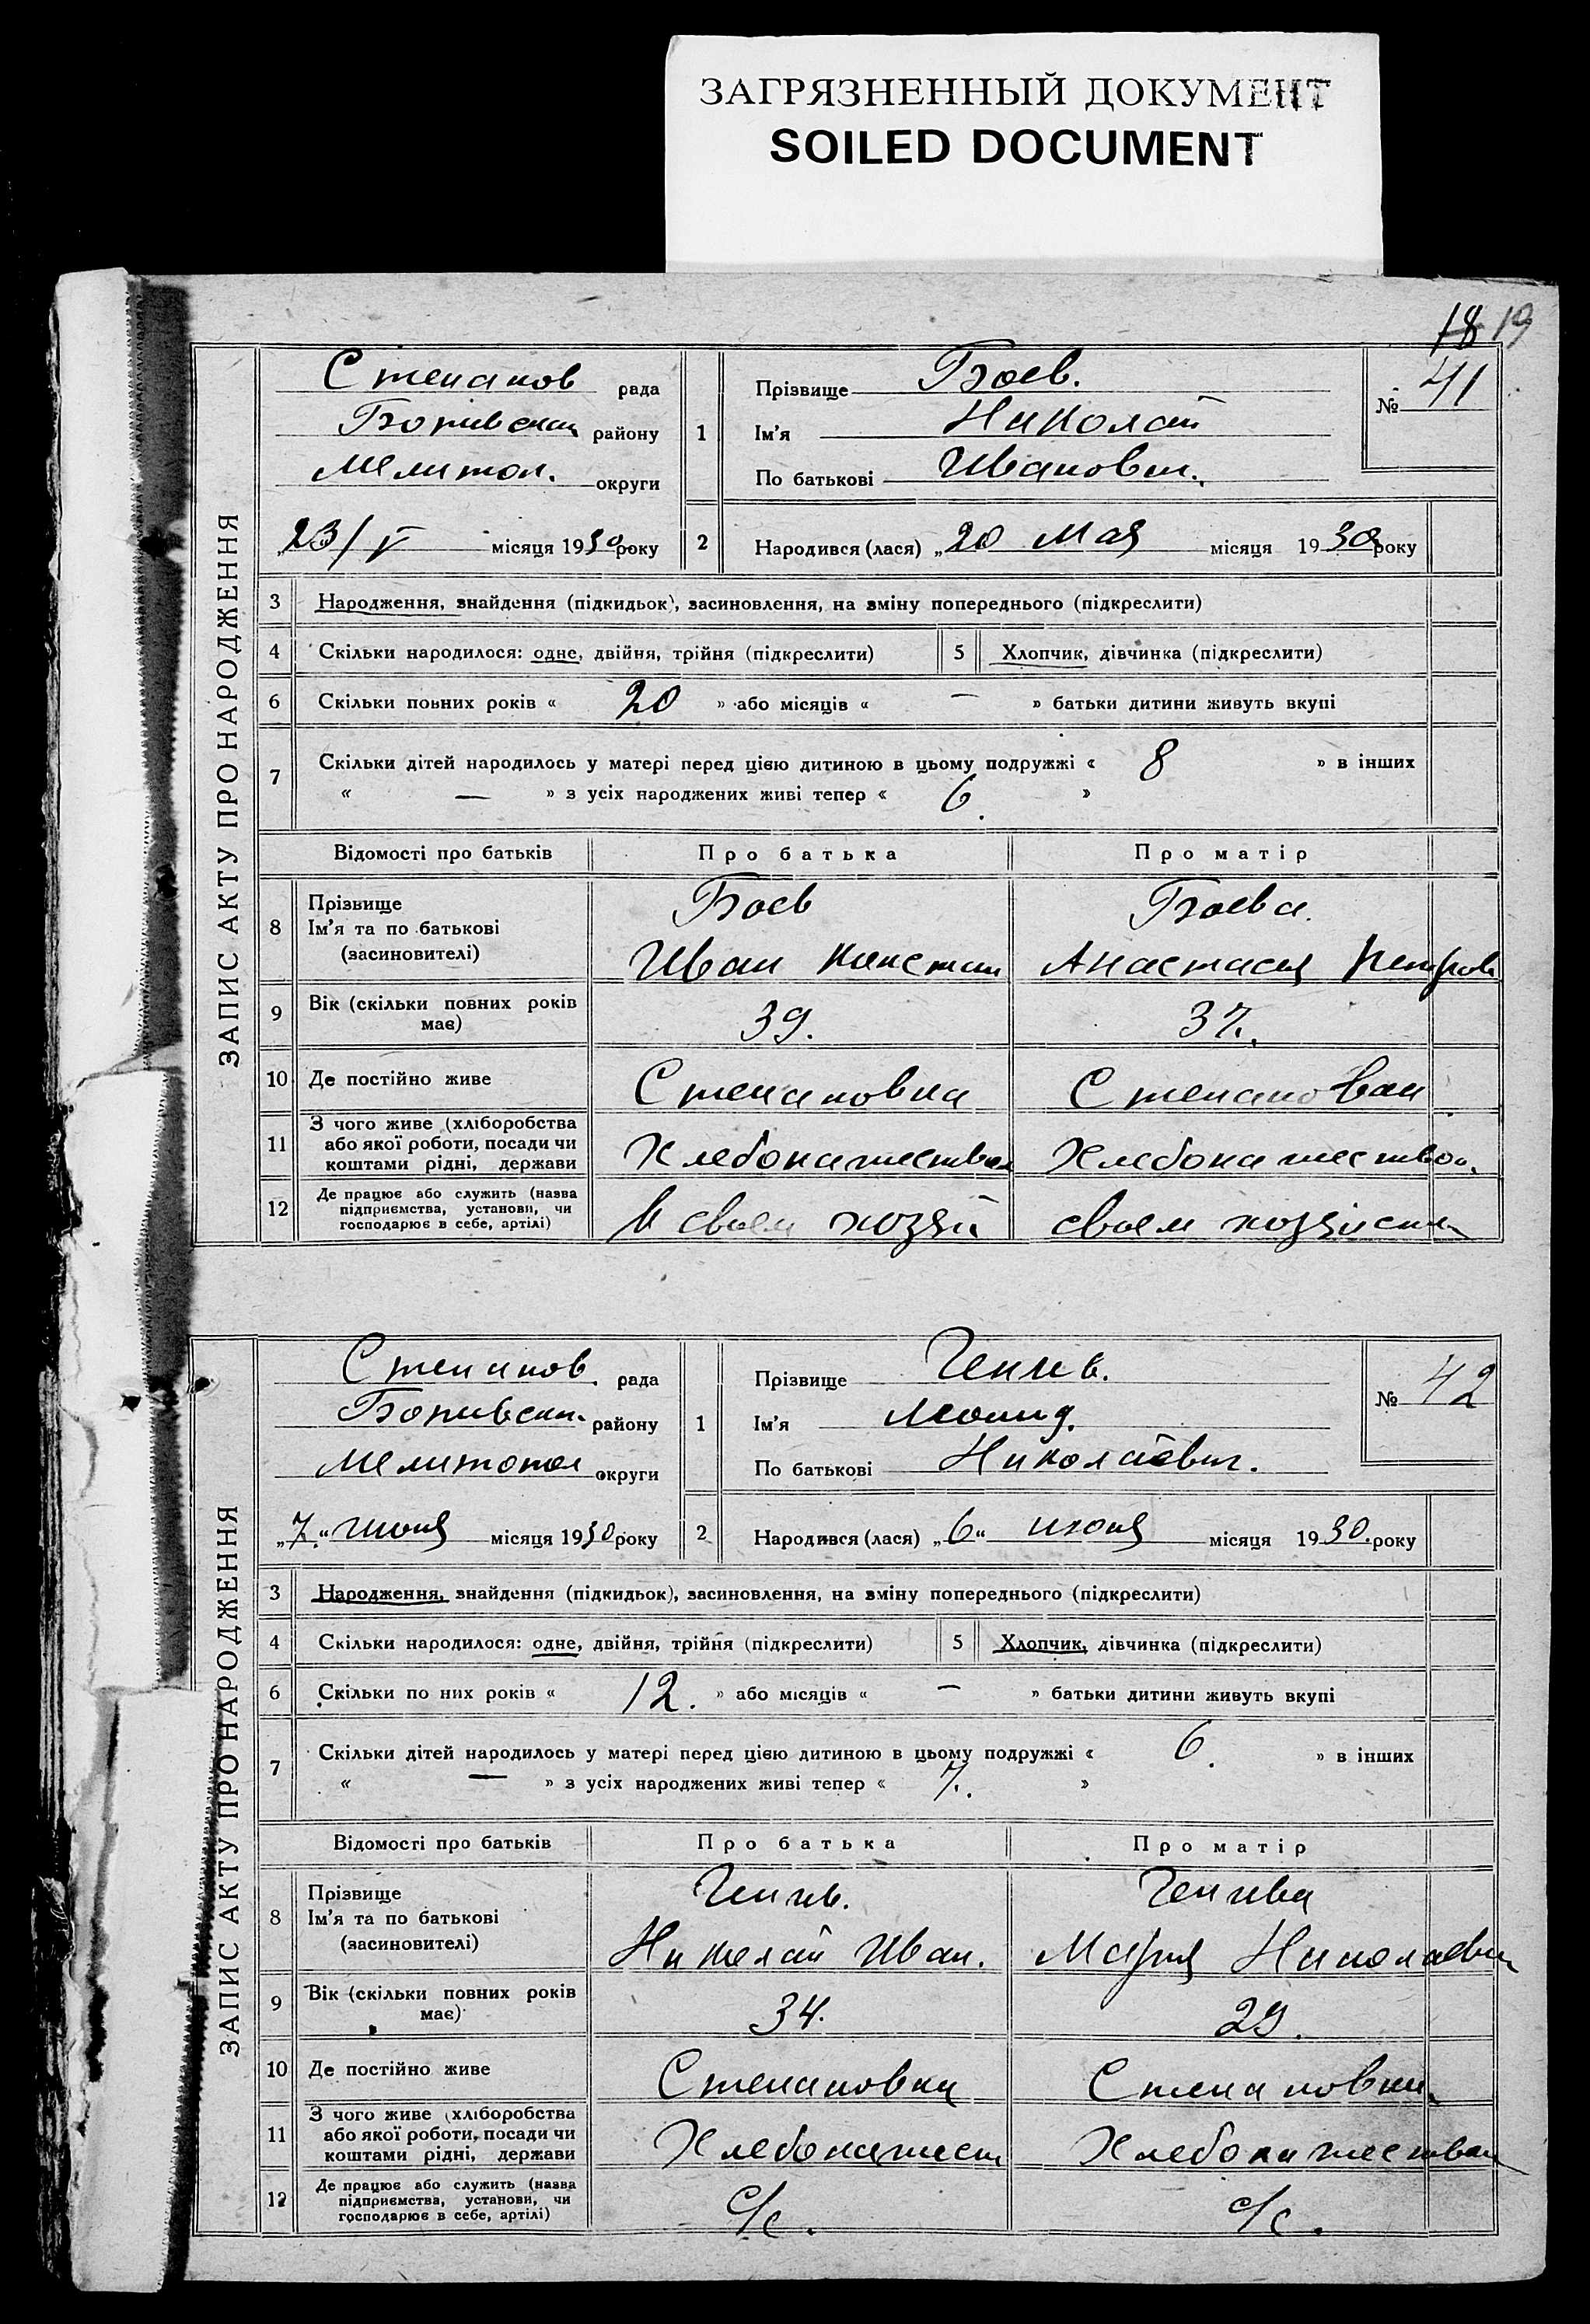 ЗАГРЯЗНЕННЫЙ ДОКУМЕНТ
SOILED DOCUMENT
18 19
ЗАПИС АКТУ ПРО НАРОДЖЕННЯ
Степанов рада
района району
Мелитоп. округи
„23/V місяця 1930 року
1 Прізвище Боев.
Ім'я Николай
По батькові Иванович.
№ 41
2 Народився (лася) „20 Мая місяця 1930 року
3 Народження, знайдення (підкидьок), засиновлення, на зміну попереднього (підкреслити)
4 Скільки народилося: одне, двійня, трійня (підкреслити) 5 Хлопчик, дівчинка (підкреслити)
6 Скільки повних років « 20 » або місяців « — » батьки дитини живуть вкупі
7 Скільки дітей народилось у матері перед цією дитиною в цьому подружжі « 8 » в інших
« — » з усіх народжених живі тепер « 6. »
Відомості про батьків Про батька Про матір
8 Прізвище Боев Боева.
Ім'я та по батькові
(засиновителі) Иван Констан Анастасия Петров
9 Вік (скільки повних років
має) 39. 37.
10 Де постійно живе Степановка Степановка
11 З чого живе (хліборобства
або якої роботи, посади чи
коштами рідні, держави Хлебопашеством Хлебопашество
12 Де працює або служить (назва
підприємства, установи, чи
господарює в себе, артілі) В своем хозяй своем хозяйстве
ЗАПИС АКТУ ПРО НАРОДЖЕННЯ
Степанов. рада
району
Мелитопол округи
„7.“ июня місяця 1930 року
1 Прізвище
Ім'я Леонид.
По батькові Николаевич.
№ 42
2 Народився (лася) „6“ июня місяця 1930. року
3 Народження, знайдення (підкидьок), засиновлення, на зміну попереднього (підкреслити)
4 Скільки народилося: одне, двійня, трійня (підкреслити) 5 Хлопчик, дівчинка (підкреслити)
6 Скільки по них років « 12. » або місяців « — » батьки дитини живуть вкупі
7 Скільки дітей народилось у матері перед цією дитиною в цьому подружжі « 6. » в інших
« — » з усіх народжених живі тепер « 7. »
Відомості про батьків Про батька Про матір
8 Прізвище
Ім'я та по батькові
(засиновителі) Николай Иван. Мария Николаевн
9 Вік (скільки повних років
має) 34. 29.
10 Де постійно живе Степановка Степановка
11 З чого живе (хліборобства
або якої роботи, посади чи
коштами рідні, держави Хлебопашест Хлебопашеством
12 Де працює або служить (назва
підприємства, установи, чи
господарює в себе, артілі) с/с. с/с.